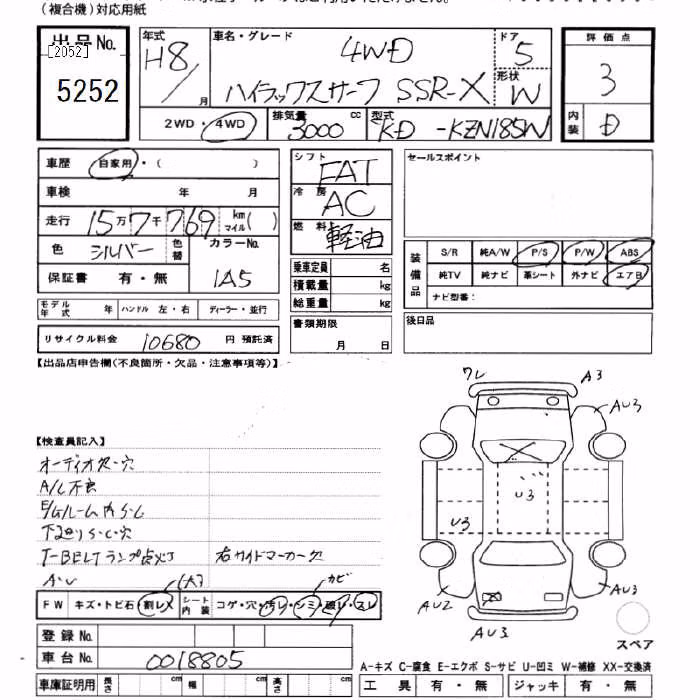 (複合機)対応用紙
出品No.
[2052]
5252
年式
H8/月
車名・グレード
4WD
ハイラックスサーフ SSR-X
ドア
5
形状
W
2WD・4WD
排気量
3000 cc
型式
KD-KZN185W
評価点
3
内装
D
車歴 自家用・( )
車検 年 月
走行 15万7千769 km マイル( )
色 シルバー 色替 カラーNo.
1A5
保証書 有・無
モデル年式 年 ハンドル 左・右 ディーラー・並行
リサイクル料金 10680 円 預託済
シフト
FAT
冷房
AC
燃料
軽油
乗車定員 名
積載量 kg
総重量 kg
書類期限
月 日
セールスポイント
装備品
S/R 純A/W P/S P/W ABS
純TV 純ナビ 革シート 外ナビ エアB
ナビ型番:
後日品
【出品店申告欄(不良箇所・欠品・注意事項等)】
【検査員記入】
オーディオ欠・穴
A/C不良
E/Gルーム内S・C
下廻りS・C・穴
T-BELTランプ点灯 右サイドマーカー欠
A・U
(大) カビ
FW キズ・トビ石 割レX シート内装 コゲ・穴・汚レ・シミ・破レ・スレ
登録No.
車台No. 0018805
車庫証明用 長さ cm 幅 cm 高さ cm
ワレ
A3
AU3
U3
U3
AU2
AU3
AU3
スペア
A-キズ C-腐食 E-エクボ S-サビ U-凹ミ W-補修 XX-交換済
工具 有・無 ジャッキ 有・無